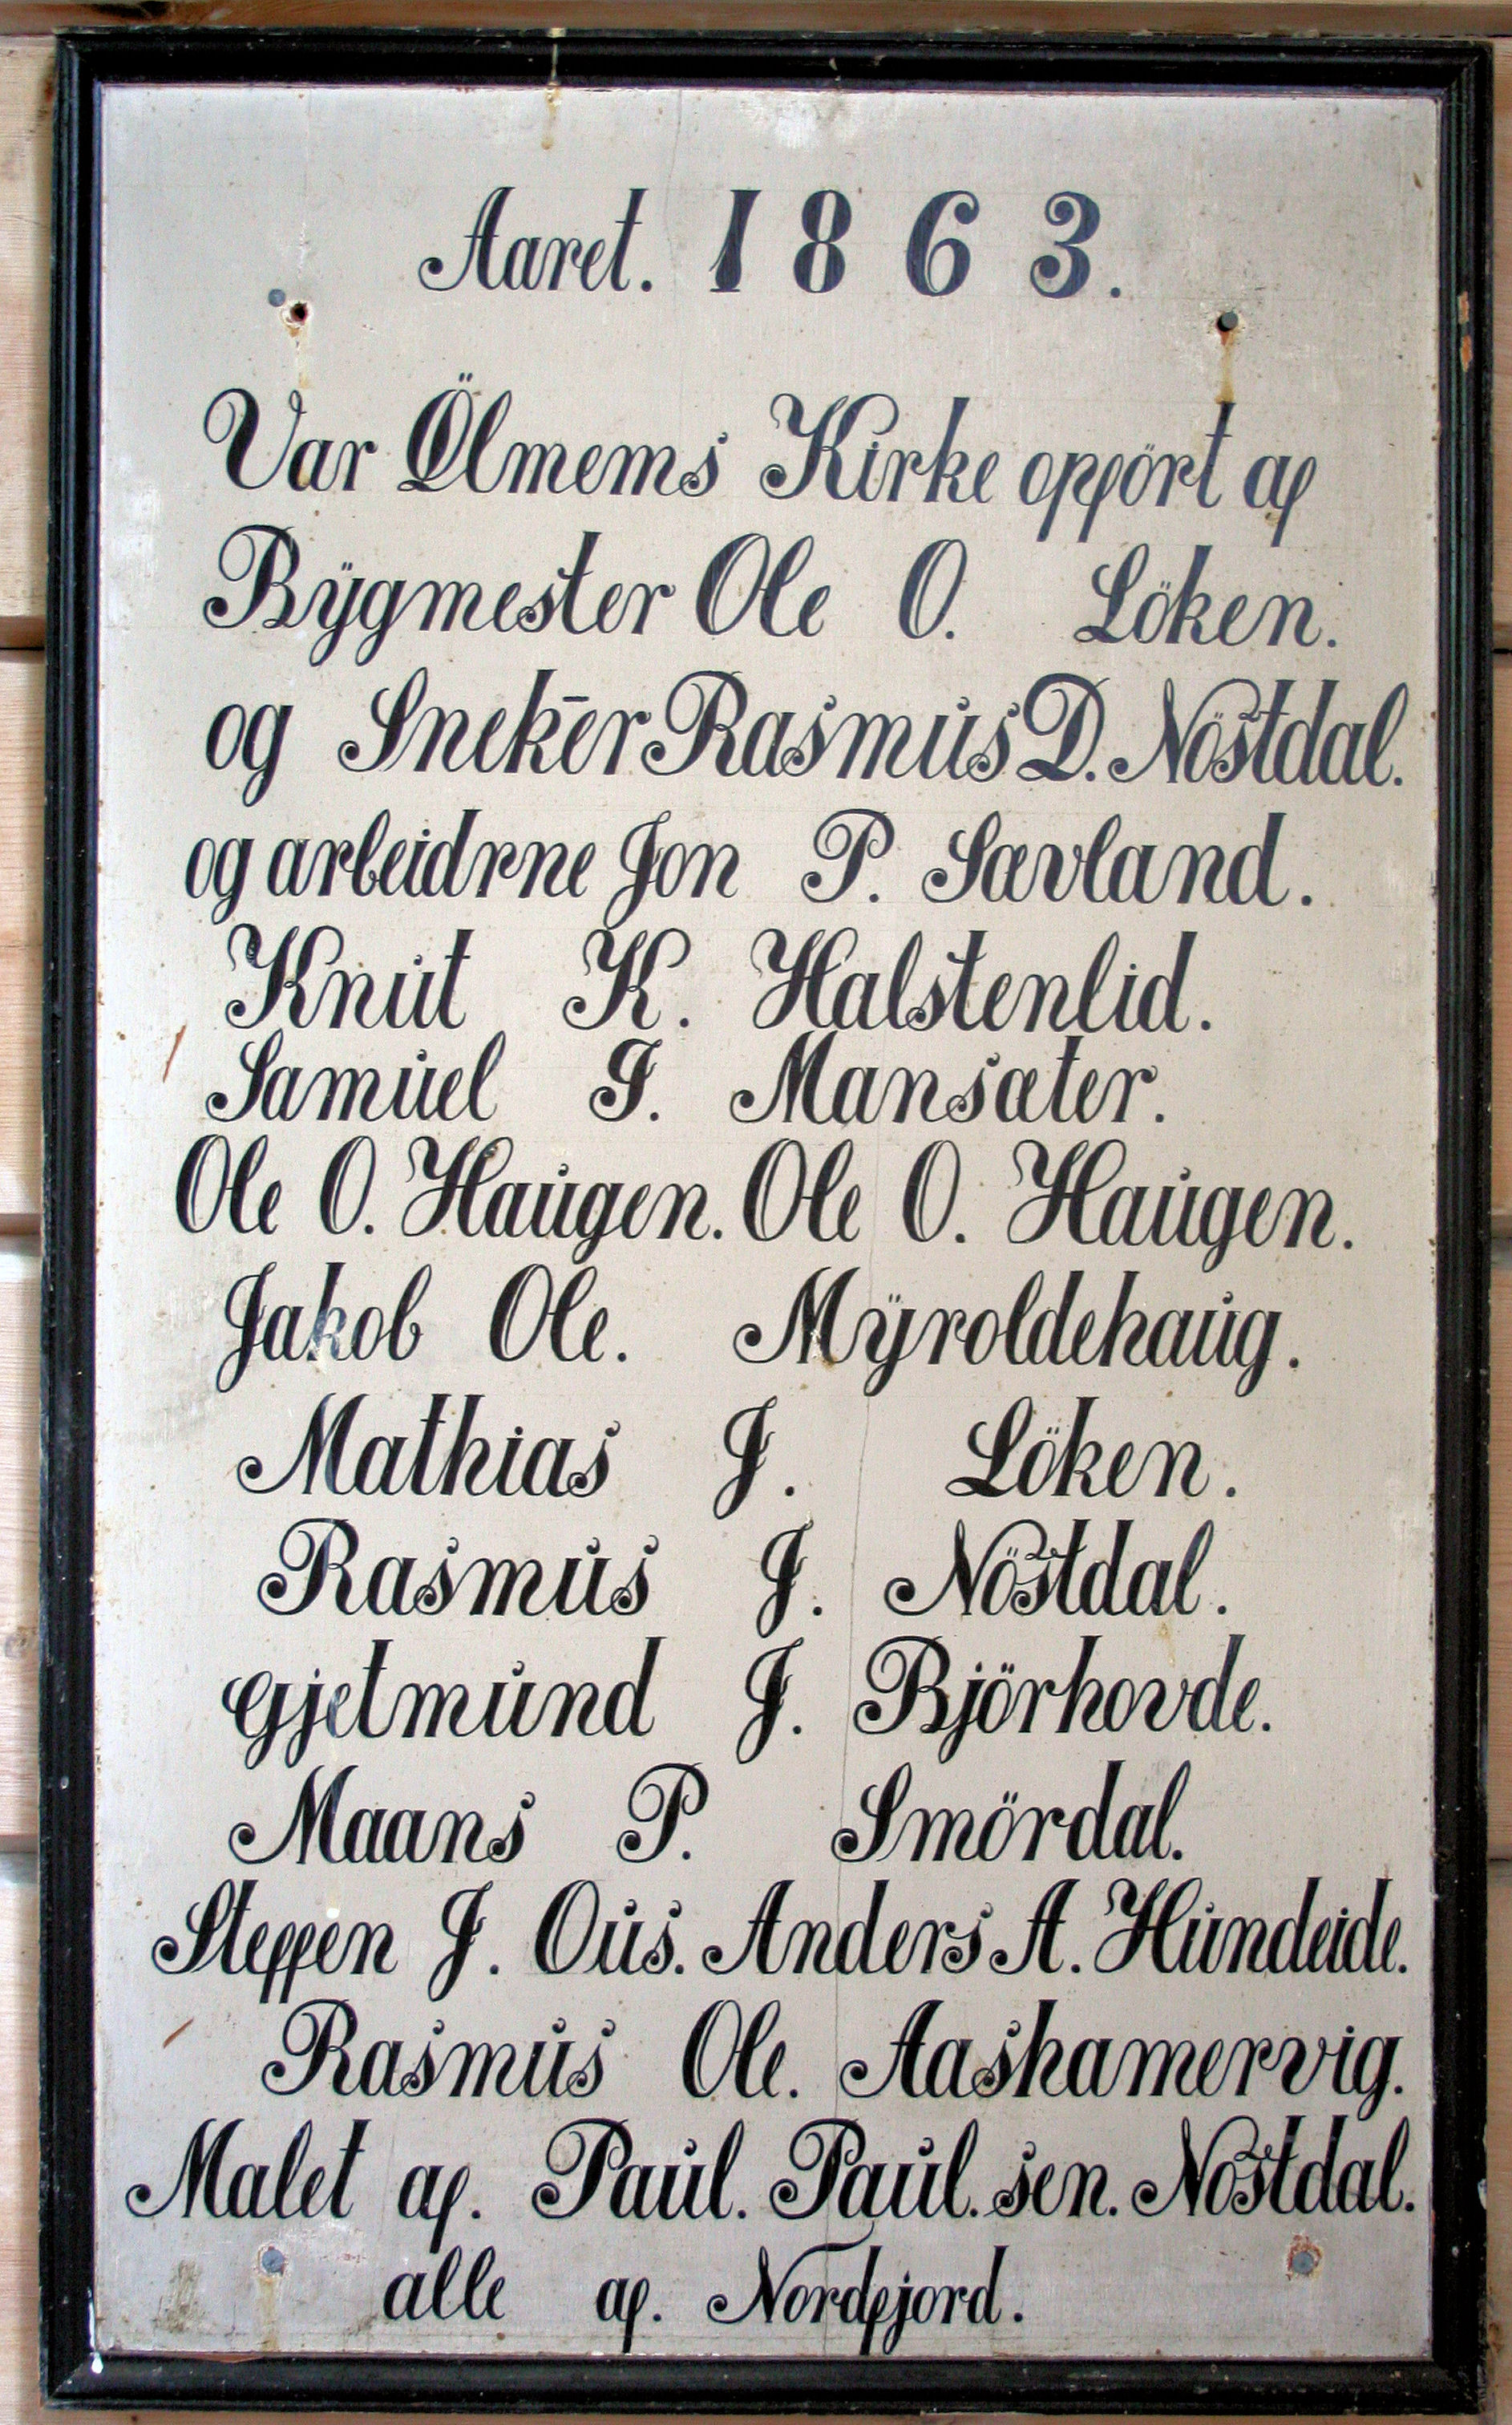 Aaret. 1863.
Var Ölmems Kirke opfört af
Bÿgmester Ole O. Löken.
og Snek̄er Rasmus D. Nöstdal.
og arbeidrne Jon P. Sævland.
Knut K. Halstenlid.
Samuel I. Mansæter.
Ole O. Haugen. Ole O. Haugen.
Jakob Ole. Mÿroldehaug.
Mathias J. Löken.
Rasmus J. Nöstdal.
Gjetmund J. Björhovde.
Maans P. Smördal.
Steffen J. Ous. Anders A. Hundeide.
Rasmus Ole. Aashamervig.
Malet af. Paul. Paul. sen. Nöstdal.
alle af. Nordfjord.